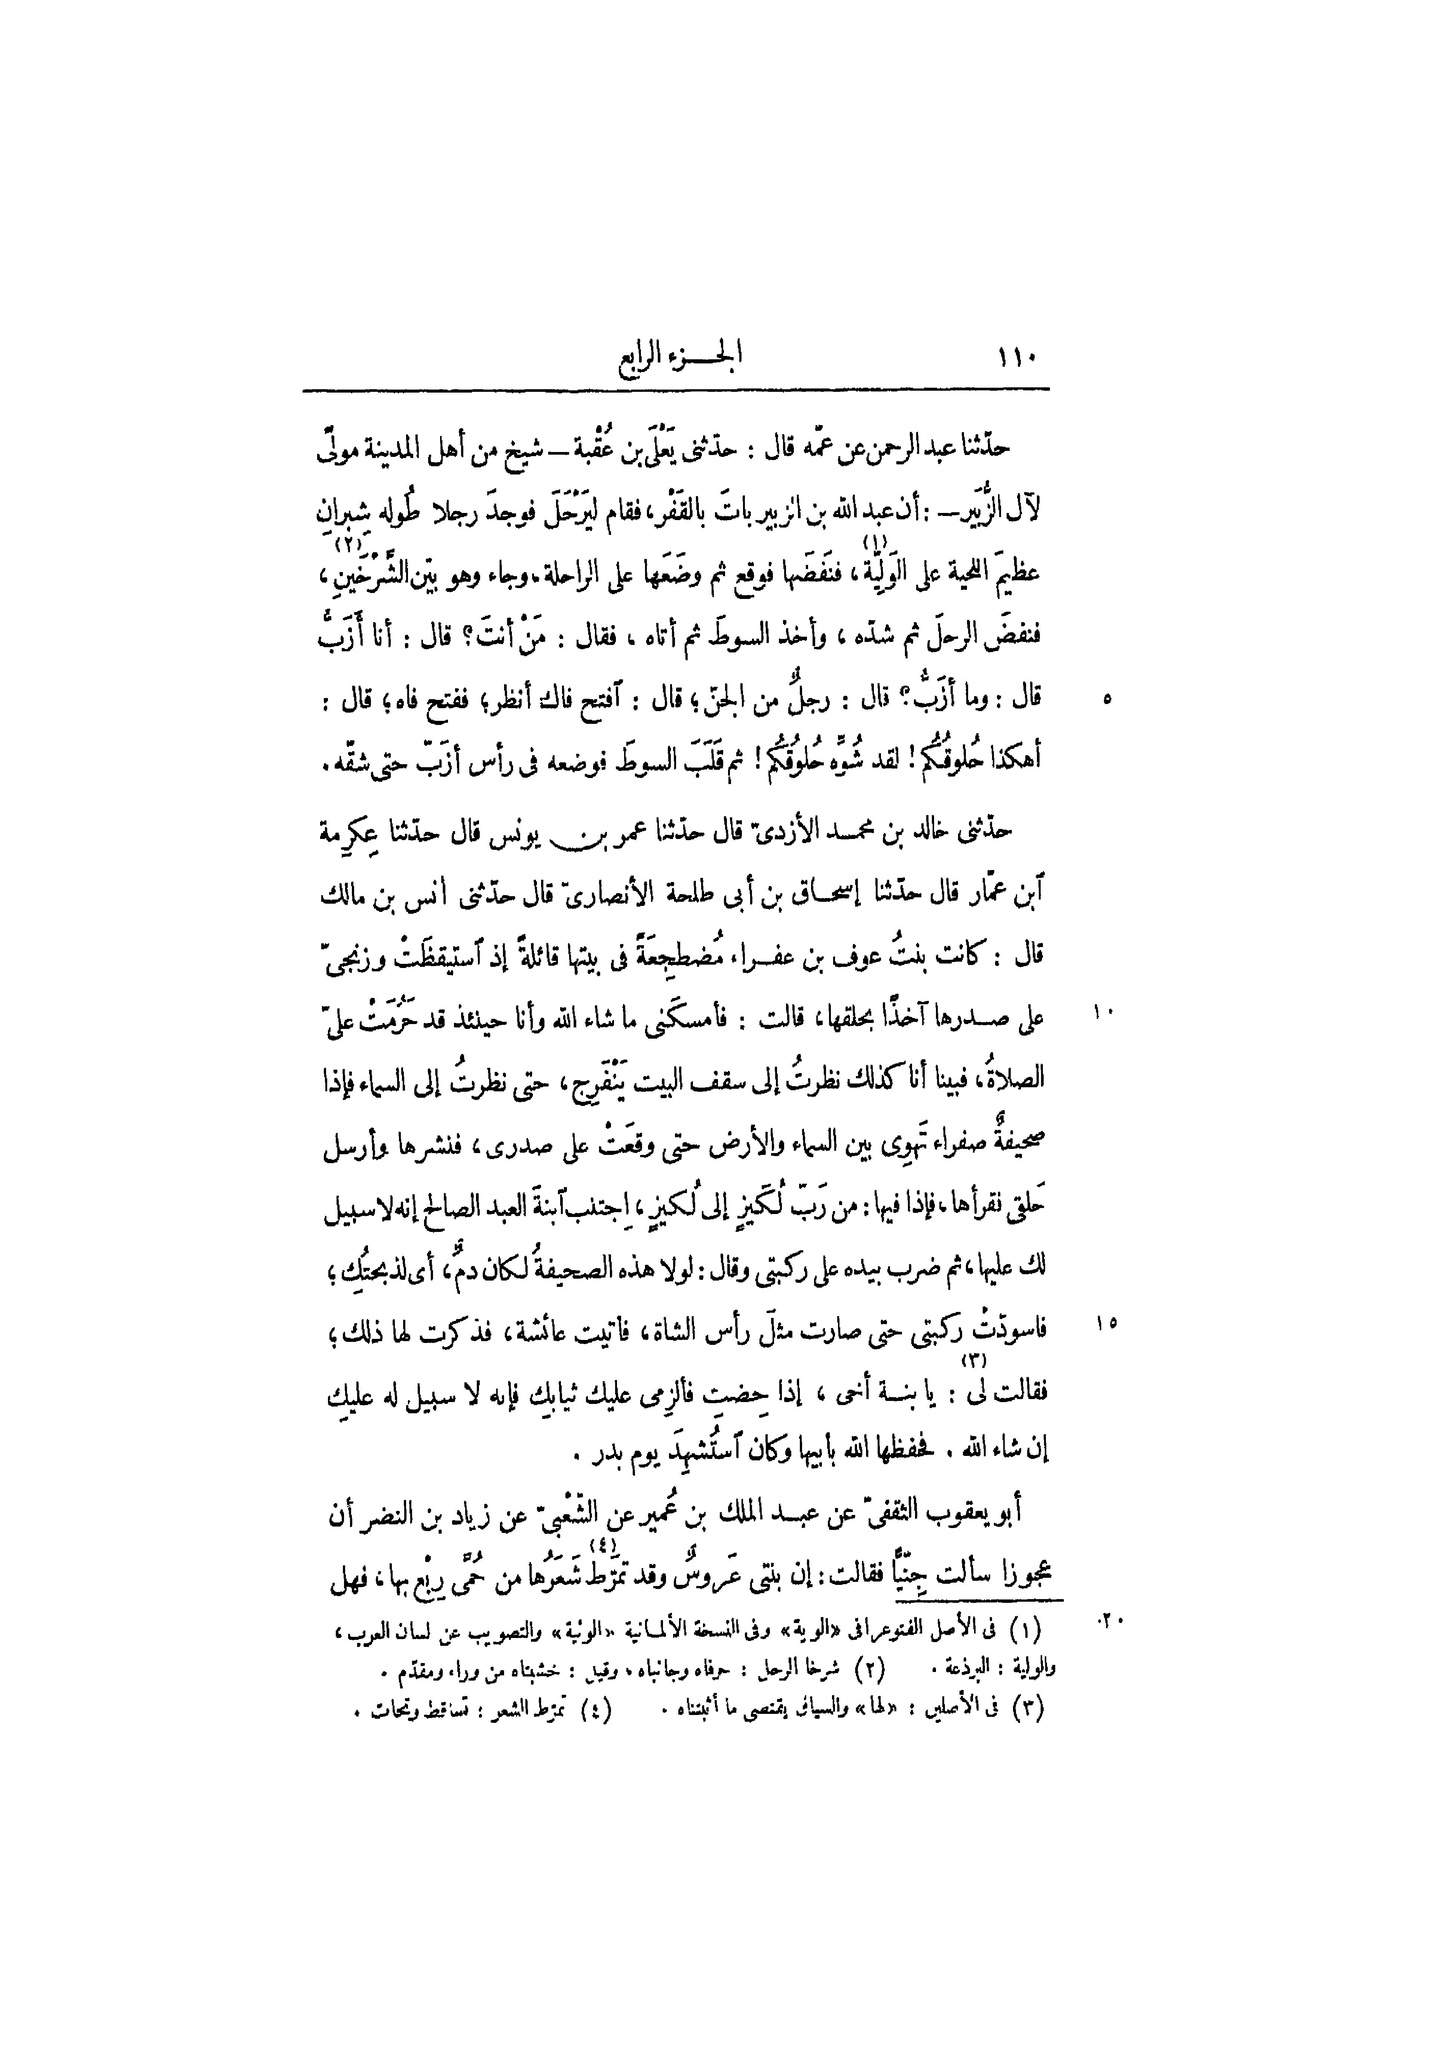 ١١٠ الجـزء الرابع
حدّثنا عبد الرحمن عن عمّه قال : حدّثنى يَعْلَى بن عُقْبة — شيخ من أهل المدينة مولًى
لآل الزُّبَير — : أن عبد الله بن الزبير باتَ بالقَفْر، فقام ليَرْحَلَ فوجدَ رجلا طُوله شِبرانِ
عظيمَ اللحية على الوَلِيّة (١)، فنَفَضَها فوقع ثم وضَعَها على الراحلة، وجاء وهو بيْن الشَّرْخَينِ (٢)،
فنفضَ الرحلَ ثم شدّه ، وأخذ السوطَ ثم أتاه ، فقال : مَنْ أنتَ؟ قال : أنا أَزَبُّ
قال : وما أزَبُّ؟ قال : رجلٌ من الجنّ؛ قال : آفتح فاك أنظر؛ ففتح فاه؛ قال : ٥
أهكذا حُلوقُكُم! لقد شُوِّه حُلوُقُكُم! ثم قَلَبَ السوطَ فوضعه فى رأس أزَبّ حتى شقّه.
حدّثنى خالد بن محمـد الأزدىّ قال حدّثنا عمر بن يونس قال حدّثنا عِكرِمة
آبن عمّار قال حدّثنا إسحـاق بن أبى طلحة الأنصارىّ قال حدّثنى أنس بن مالك
قال : كانت بنتُ عوف بن عفـراء مُضطجِعَةً فى بيتها قائلةً إذ آستيقظَتْ وزنجىّ
على صـدرها آخذًا بحلقها، قالت : فأمسكَنى ما شاء الله وأنا حينئذ قد حَرُمَتْ علىّ ١٠
الصلاةُ، فبينا أنا كذلك نظرتُ إلى سقف البيت يَنْفَرِج، حتى نظرتُ إلى السماء فإذا
صحيفةٌ صفراء تَهوِى بين السماء والأرض حتى وقعَتْ على صدرى، فنشرها وأرسل
حَلقى فقرأها، فإذا فيها: من رَبّ لُكَيزٍ إلى لُكيزٍ، اِجتنب آبنةَ العبد الصالح إنه لا سبيل
لك عليها، ثم ضرب بيده على ركبتى وقال: لولا هذه الصحيفةُ لكان دمٌ، أى لذبحتُكِ؛
فاسودّتْ ركبتى حتى صارت مثلَ رأس الشاة، فأتيت عائشة، فذكرت لها ذلك؛ ١٥
فقالت لى (٣) : يا بنـة أخى ، إذا حِضتِ فألزِمى عليك ثيابكِ فإنه لا سبيل له عليكِ
إن شاء الله . فحفظها الله بأبيها وكان آستُشهِدَ يوم بدر .
أبو يعقوب الثقفىّ عن عبـد الملك بن عُمير عن الشَّعْبىّ عن زياد بن النضر أن
عجوزا سألت جِنّيًّا فقالت: إن بنتى عَروسٌ وقد تمَرّط (٤) شَعَرُها من حُمَّى رِبْع بها، فهل
(١) فى الأصل الفتوغرافى «الوية» وفى النسخة الألمانية «الوثية» والتصويب عن لسان العرب، ٢٠
والولية : البرذعة . (٢) شرخا الرحل : حرفاه وجانباه، وقيل : خشبتاه من وراء ومقدّم .
(٣) فى الأصلين : «لها» والسياق يقتضى ما أثبتناه . (٤) تمرّط الشعر : تساقط وتحات .